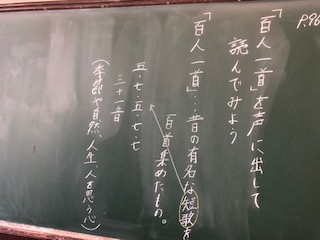 P.96
「百人一首」を声に出して
読んでみよう
「百人一首」…昔の有名な短歌を
百首集めたもの。
五・七・五・七・七
三十一音
(季節や自然、人生、人を思う心)